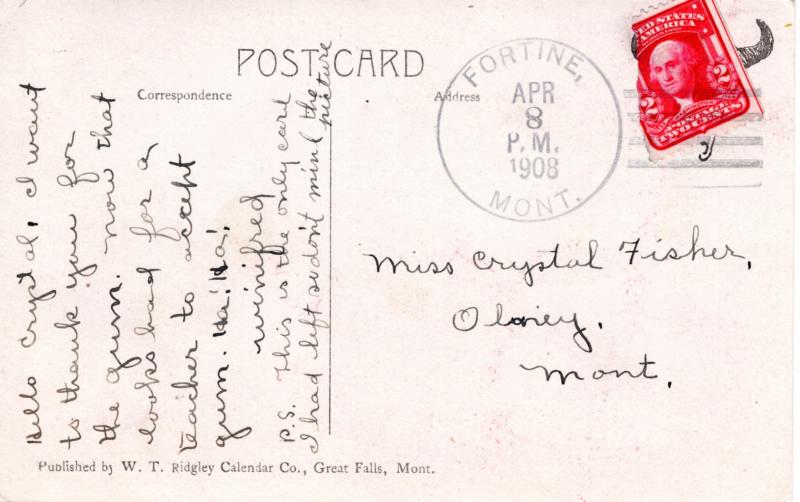 POST CARD
Correspondence
Address
FORTINE,
APR
8
P. M.
1908
MONT.
UNITED STATES
AMERICA
2 2
WASHINGTON
POSTAGE
TWO CENTS
Hello Crystal, I want
to thank you for
the gum. Now that
looks bad for a
teacher to accept
gum. Ha! Ha!
Winifred
P.S. This is the only card
I had left so don't mind the
picture
Miss Crystal Fisher,
Olney,
Mont.
Published by W. T. Ridgley Calendar Co., Great Falls, Mont.